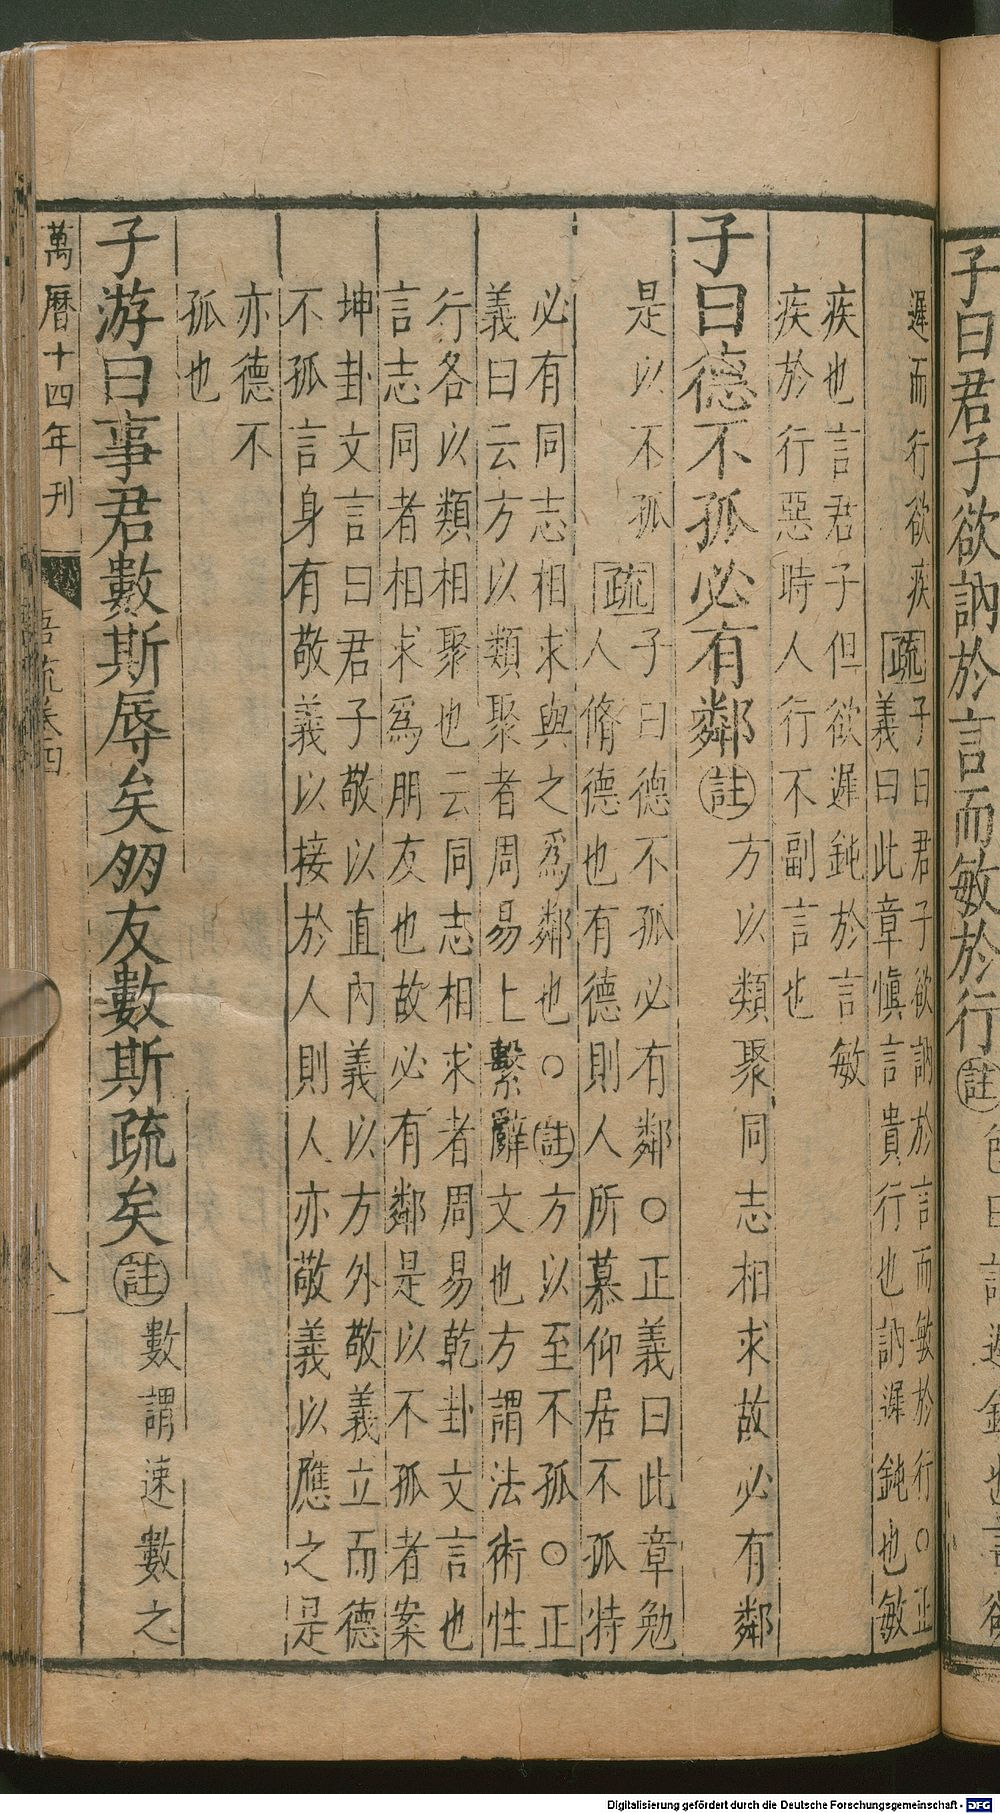 子曰君子欲訥於言而敏於行註
遲而行欲疾疏子曰君子欲訥於言而敏於行○正
義曰此章慎言貴行也訥遲鈍也敏
疾也言君子但欲遲鈍於言敏
疾於行惡時人行不副言也
子曰德不孤必有鄰註方以類聚同志相求故必有鄰
是以不孤疏子曰德不孤必有鄰○正義曰此章勉
人脩德也有德則人所慕仰居不孤特
必有同志相求與之爲鄰也○註方以至不孤○正
義曰云方以類聚者周易上繫辭文也方謂法術性
行各以類相聚也云同志相求者周易乾卦文言也
言志同者相求爲朋友也故必有鄰是以不孤者案
坤卦文言曰君子敬以直內義以方外敬義立而德
不孤言身有敬義以接於人則人亦敬義以應之是
亦德不
孤也
子游曰事君數斯辱矣朋友數斯疏矣註數謂速數之
萬曆十四年刊
卷四
Digitalisierung gefördert durch die Deutsche Forschungsgemeinschaft - DFG